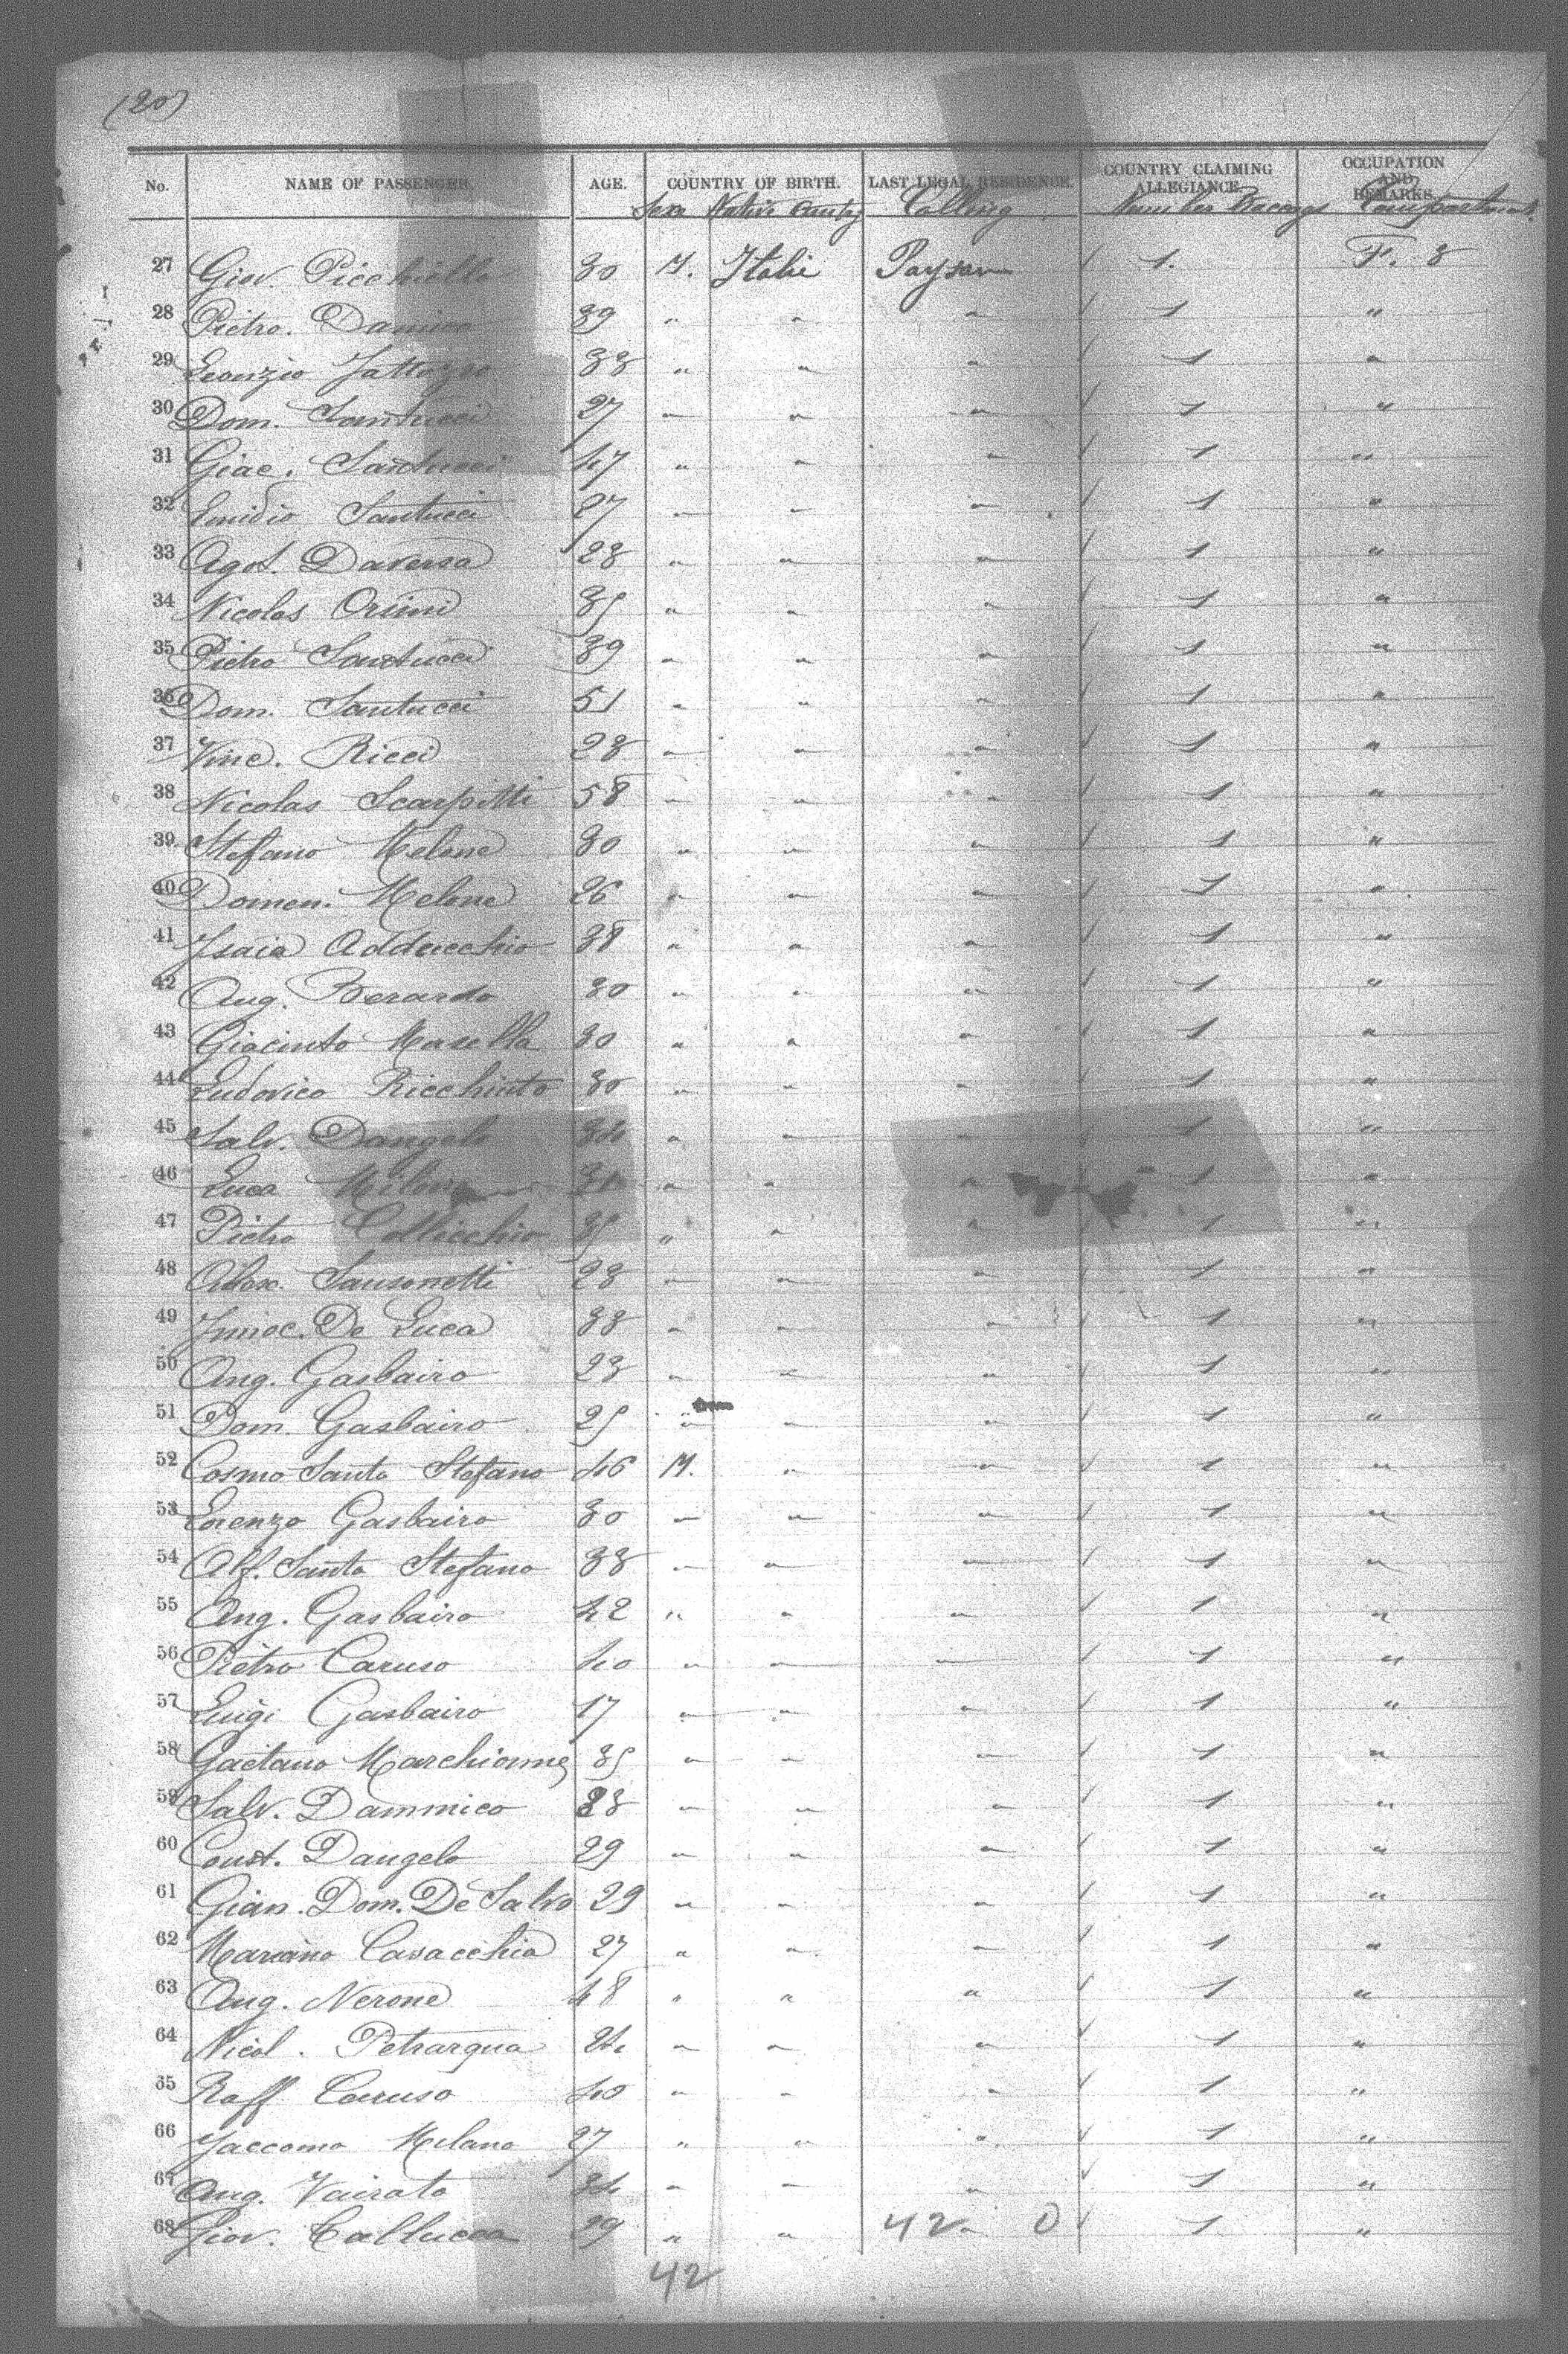 (20)
No. NAME OF PASSENGER. AGE. COUNTRY OF BIRTH. LAST LEGAL RESIDENCE. COUNTRY CLAIMING ALLEGIANCE. OCCUPATION AND REMARKS.
Sexe Native Country Calling Number Baccages Compartment
27 Giov. Picchiello 30 M. Italie Paysan 1. F. 3
28 Pietro. Damico 39 " " " 1 "
29 Leonzio 33 " " " 1 "
30 Dom. Santucci 27 " " " 1 "
31 Giac. Santucci 47 " " " 1 "
32 Emidio Santucci 27 " " " 1 "
33 Agot. Daversa 23 " " " 1 "
34 Nicolas 35 " " " 1 "
35 Pietro Santucci 39 " " " 1 "
36 Dom. Santucci 51 " " " 1 "
37 Vinc. Ricci 23 " " " 1 "
38 Nicolas Scarpitti 58 " " " 1 "
39 Stefano Melone 30 " " " 1 "
40 Domen. Melone 26 " " " 1 "
41 Isaia Adducchio 38 " " " 1 "
42 Aug. Berardo 30 " " " 1 "
43 Giacinto Masella 30 " " " 1 "
44 Ludovico Ricchiuto 30 " " " 1 "
45 Salv. Dangelo 34 " " " 1 "
46 Luca " " " 1 "
47 Pietro Collicchio 35 " " " 1 "
48 Sansonetti 23 " " " 1 "
49 Innoc. De Luca 33 " " " 1 "
50 Ang. Gasbairo 23 " " " 1 "
51 Dom. Gasbairo 25 " " " 1 "
52 Cosmo Santo Stefano 46 M. " " 1 "
53 Lorenzo Gasbairo 30 " " " 1 "
54 Alf. Santo Stefano 33 " " " 1 "
55 Ang. Gasbairo 42 " " " 1 "
56 Pietro Caruso 40 " " " 1 "
57 Luigi Gasbairo 17 " " " 1 "
58 Gaetano Marchionne 35 " " " 1 "
59 Salv. Dammico 23 " " " 1 "
60 Const. Dangelo 29 " " " 1 "
61 Gian. Dom. De Salvo 29 " " " 1 "
62 Mariano Cavacchia 27 " " " 1 "
63 Aug. Nerone 48 " " " 1 "
64 Nicol. Petrarqua 24 " " " 1 "
65 Raff Caruso 40 " " " 1 "
66 Jaccomo Milano 27 " " " 1 "
67 Ang. Vairato 34 " " " 1 "
68 Giov. Callucca 29 " " 42 " 0 1 "
42